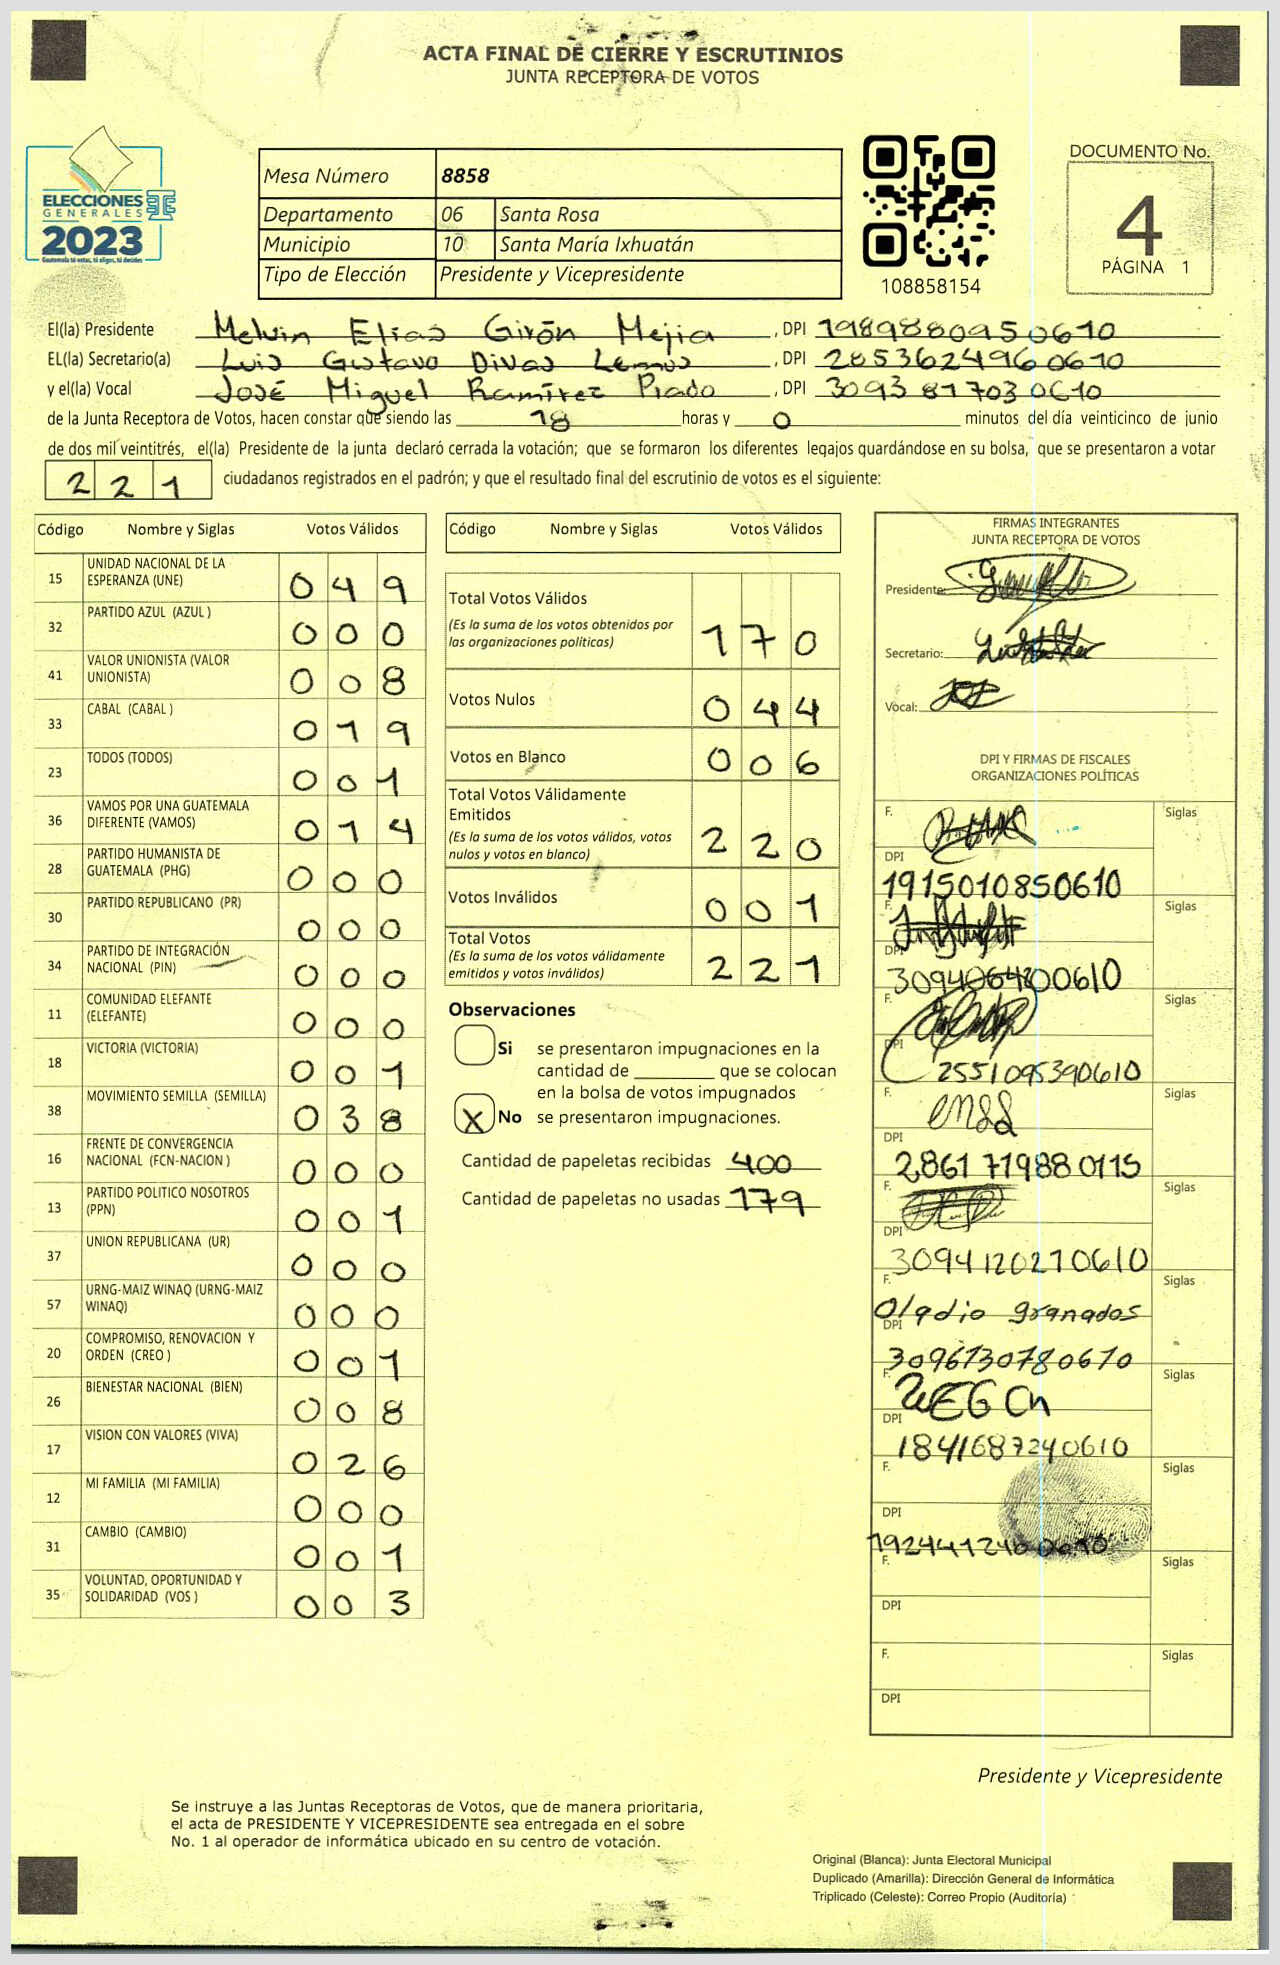 ACTA FINAL DE CIERRE Y ESCRUTINIOS
JUNTA RECEPTORA DE VOTOS
ELECCIONES
GENERALES
2023
Guatemala tú votas, tú eliges, tú decides
Mesa Número 8858
Departamento 06 Santa Rosa
Municipio 10 Santa María Ixhuatán
Tipo de Elección Presidente y Vicepresidente
108858154
DOCUMENTO No.
4
PÁGINA 1
El(la) Presidente Melvin Elias Girón Mejia , DPI 1989880950610
EL(la) Secretario(a) Luis Gustavo Divas Lemus , DPI 2853624960610
y el(la) Vocal José Miguel Ramírez Prado , DPI 3093817030610
de la Junta Receptora de Votos, hacen constar que siendo las 18 horas y 0 minutos del día veinticinco de junio
de dos mil veintitrés, el(la) Presidente de la junta declaró cerrada la votación; que se formaron los diferentes legajos guardándose en su bolsa, que se presentaron a votar
221 ciudadanos registrados en el padrón; y que el resultado final del escrutinio de votos es el siguiente:
Código Nombre y Siglas Votos Válidos
15 UNIDAD NACIONAL DE LA ESPERANZA (UNE) 049
32 PARTIDO AZUL (AZUL ) 000
41 VALOR UNIONISTA (VALOR UNIONISTA) 008
33 CABAL (CABAL ) 019
23 TODOS (TODOS) 001
36 VAMOS POR UNA GUATEMALA DIFERENTE (VAMOS) 014
28 PARTIDO HUMANISTA DE GUATEMALA (PHG) 000
30 PARTIDO REPUBLICANO (PR) 000
34 PARTIDO DE INTEGRACIÓN NACIONAL (PIN) 000
11 COMUNIDAD ELEFANTE (ELEFANTE) 000
18 VICTORIA (VICTORIA) 001
38 MOVIMIENTO SEMILLA (SEMILLA) 038
16 FRENTE DE CONVERGENCIA NACIONAL (FCN-NACION ) 000
13 PARTIDO POLITICO NOSOTROS (PPN) 001
37 UNION REPUBLICANA (UR) 000
57 URNG-MAIZ WINAQ (URNG-MAIZ WINAQ) 000
20 COMPROMISO, RENOVACION Y ORDEN (CREO ) 001
26 BIENESTAR NACIONAL (BIEN) 008
17 VISION CON VALORES (VIVA) 026
12 MI FAMILIA (MI FAMILIA) 000
31 CAMBIO (CAMBIO) 001
35 VOLUNTAD, OPORTUNIDAD Y SOLIDARIDAD (VOS ) 003
Código Nombre y Siglas Votos Válidos
Total Votos Válidos
(Es la suma de los votos obtenidos por
las organizaciones políticas) 170
Votos Nulos 044
Votos en Blanco 006
Total Votos Válidamente
Emitidos
(Es la suma de los votos válidos, votos
nulos y votos en blanco) 220
Votos Inválidos 001
Total Votos
(Es la suma de los votos válidamente
emitidos y votos inválidos) 221
Observaciones
Si se presentaron impugnaciones en la
cantidad de ________ que se colocan
en la bolsa de votos impugnados
X No se presentaron impugnaciones.
Cantidad de papeletas recibidas 400
Cantidad de papeletas no usadas 179
FIRMAS INTEGRANTES
JUNTA RECEPTORA DE VOTOS
Presidente:
Secretario:
Vocal:
DPI Y FIRMAS DE FISCALES
ORGANIZACIONES POLÍTICAS
F. Siglas
DPI
1915010850610
F. Siglas
DPI
3094064200610
F. Siglas
DPI
2551095390610
F. Siglas
DPI
2861719880115
F. Siglas
DPI
3094120270610
F. Oladio granados Siglas
DPI
3096730780610
F. Siglas
DPI
1841687240610
F. Siglas
DPI
F. Siglas
DPI
F. Siglas
DPI
Presidente y Vicepresidente
Se instruye a las Juntas Receptoras de Votos, que de manera prioritaria,
el acta de PRESIDENTE Y VICEPRESIDENTE sea entregada en el sobre
No. 1 al operador de informática ubicado en su centro de votación.
Original (Blanca): Junta Electoral Municipal
Duplicado (Amarilla): Dirección General de Informática
Triplicado (Celeste): Correo Propio (Auditoría)